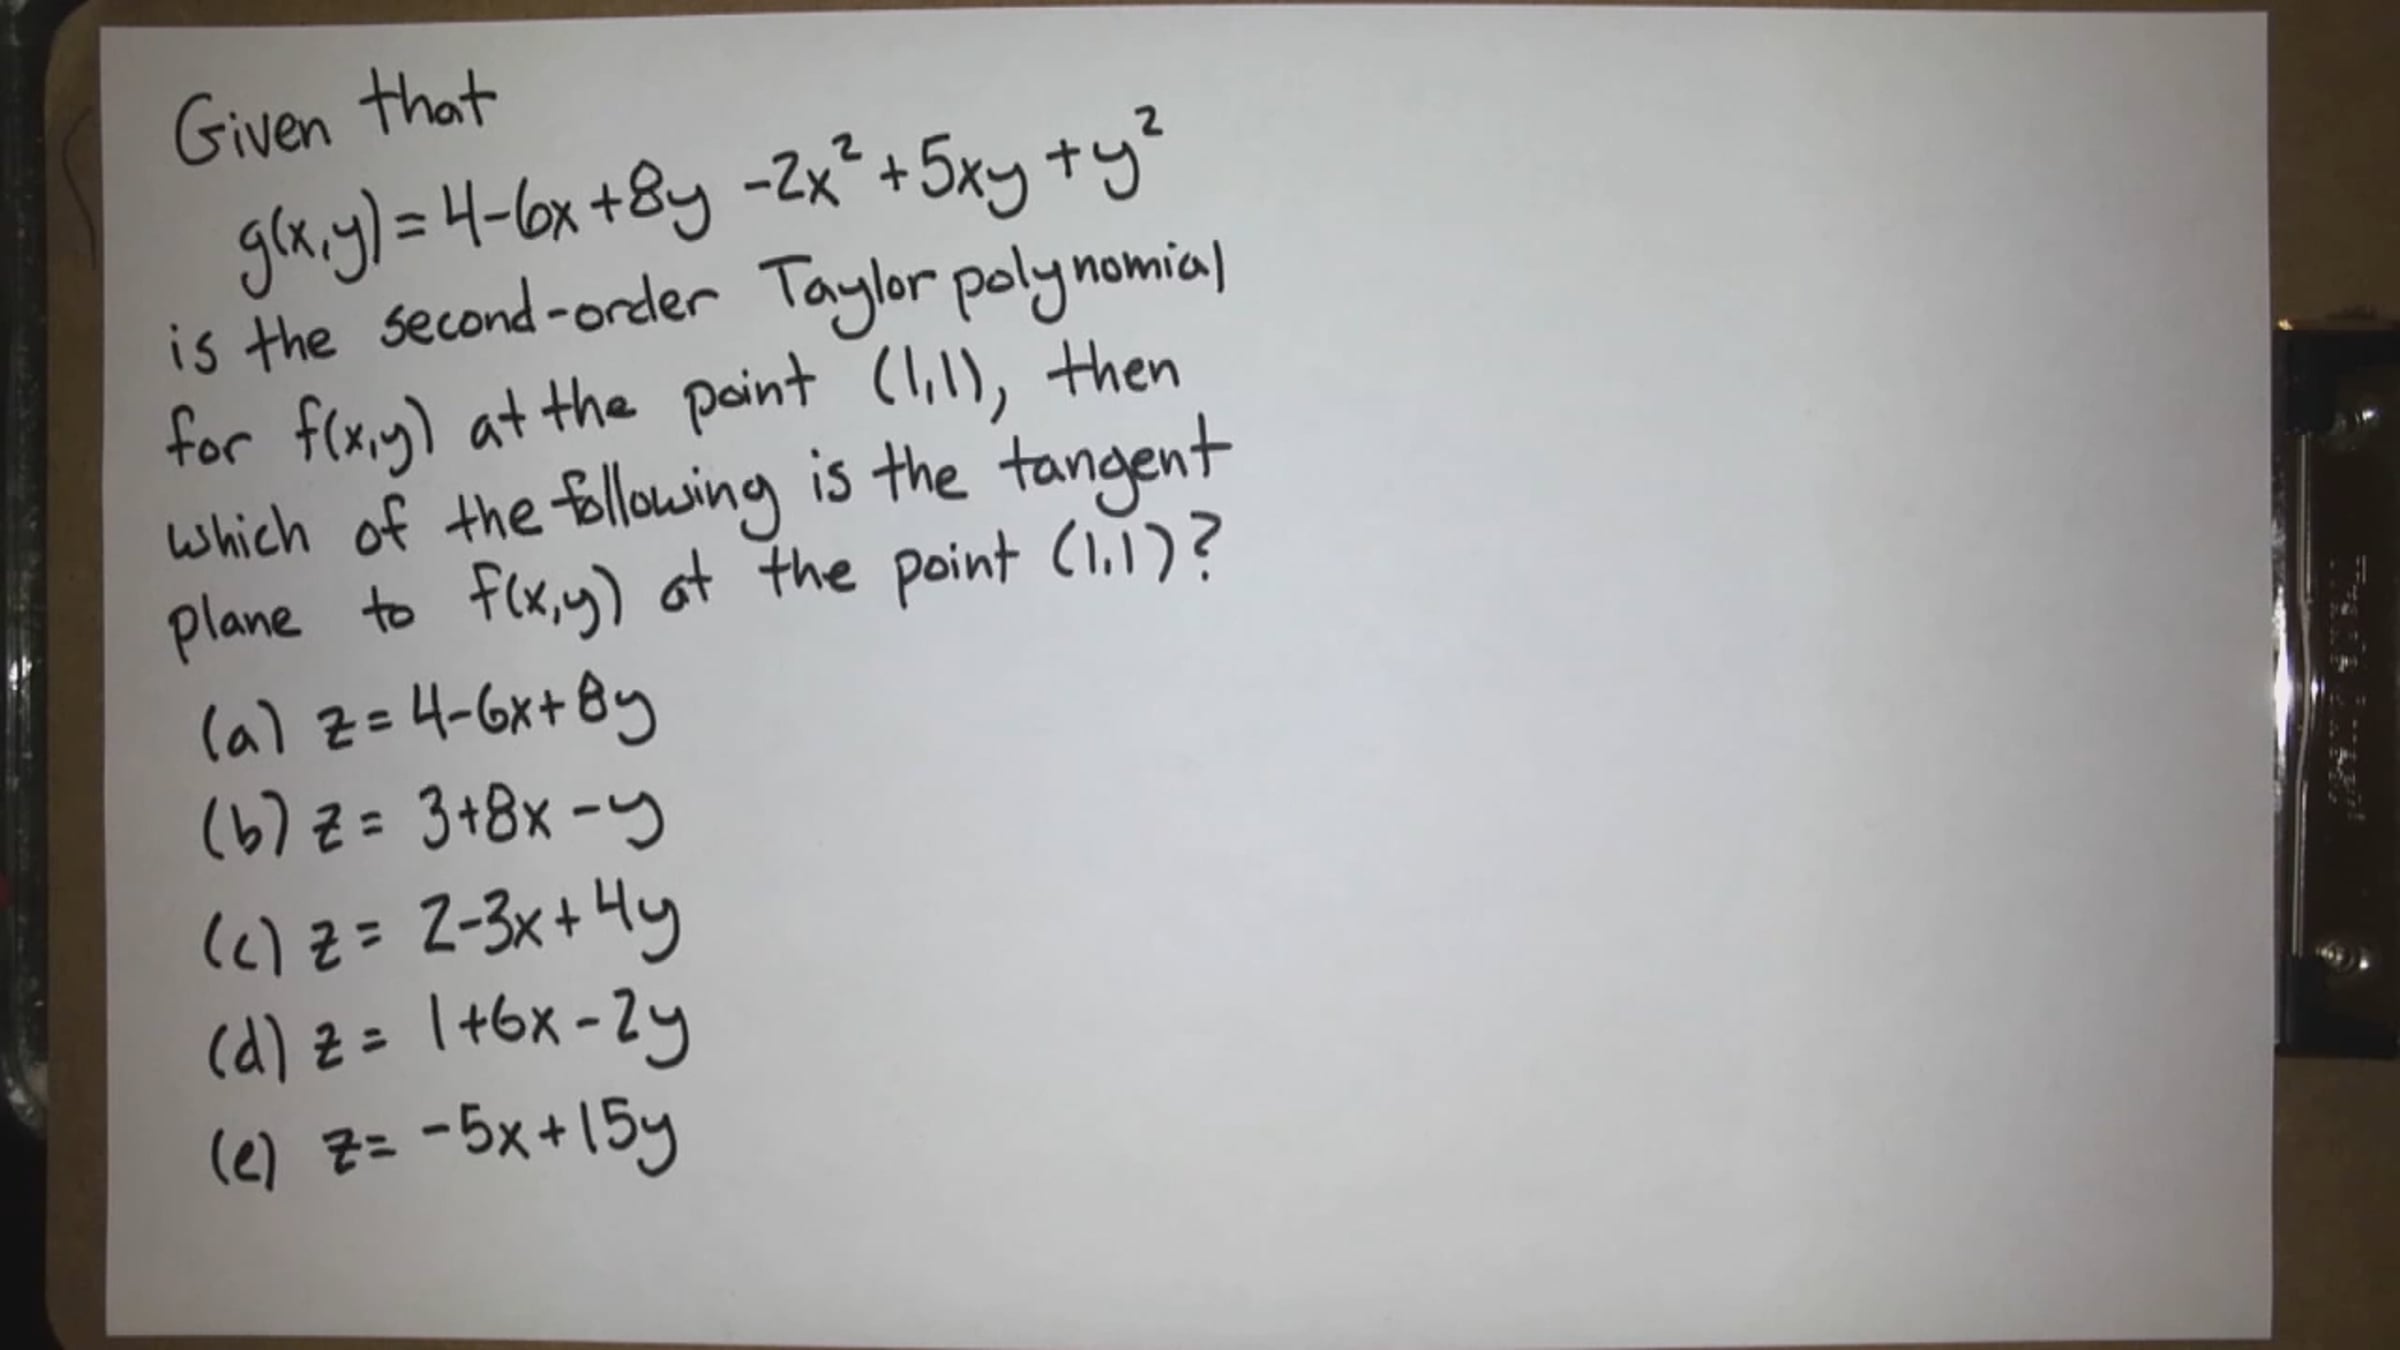 Given that
g(x,y)=4-6x+8y-2x²+5xy+y²
is the second-order Taylor polynomial
for f(x,y) at the point (1,1), then
which of the following is the tangent
plane to f(x,y) at the point (1,1)?
(a) z=4-6x+8y
(b) z= 3+8x-y
(c) z= 2-3x+4y
(d) z= 1+6x-2y
(e) z= -5x+15y